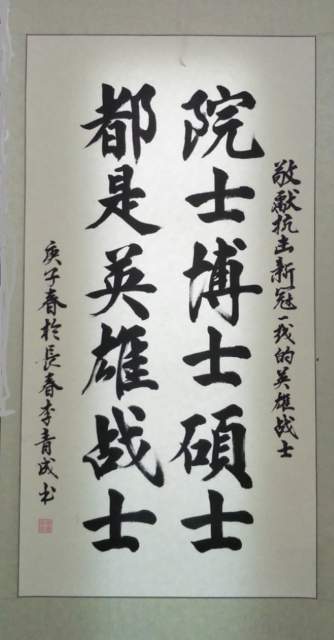 敬献抗击新冠一线的英雄战士
院士博士硕士
都是英雄战士
庚子春於長春李青成书